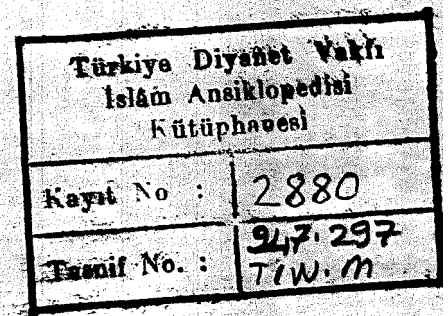 Türkiye Diyanet Vakfı
İslâm Ansiklopedisi
Kütüphanesi
Kayıt No : 2880
Tasnif No. : 947.297
TİW.M